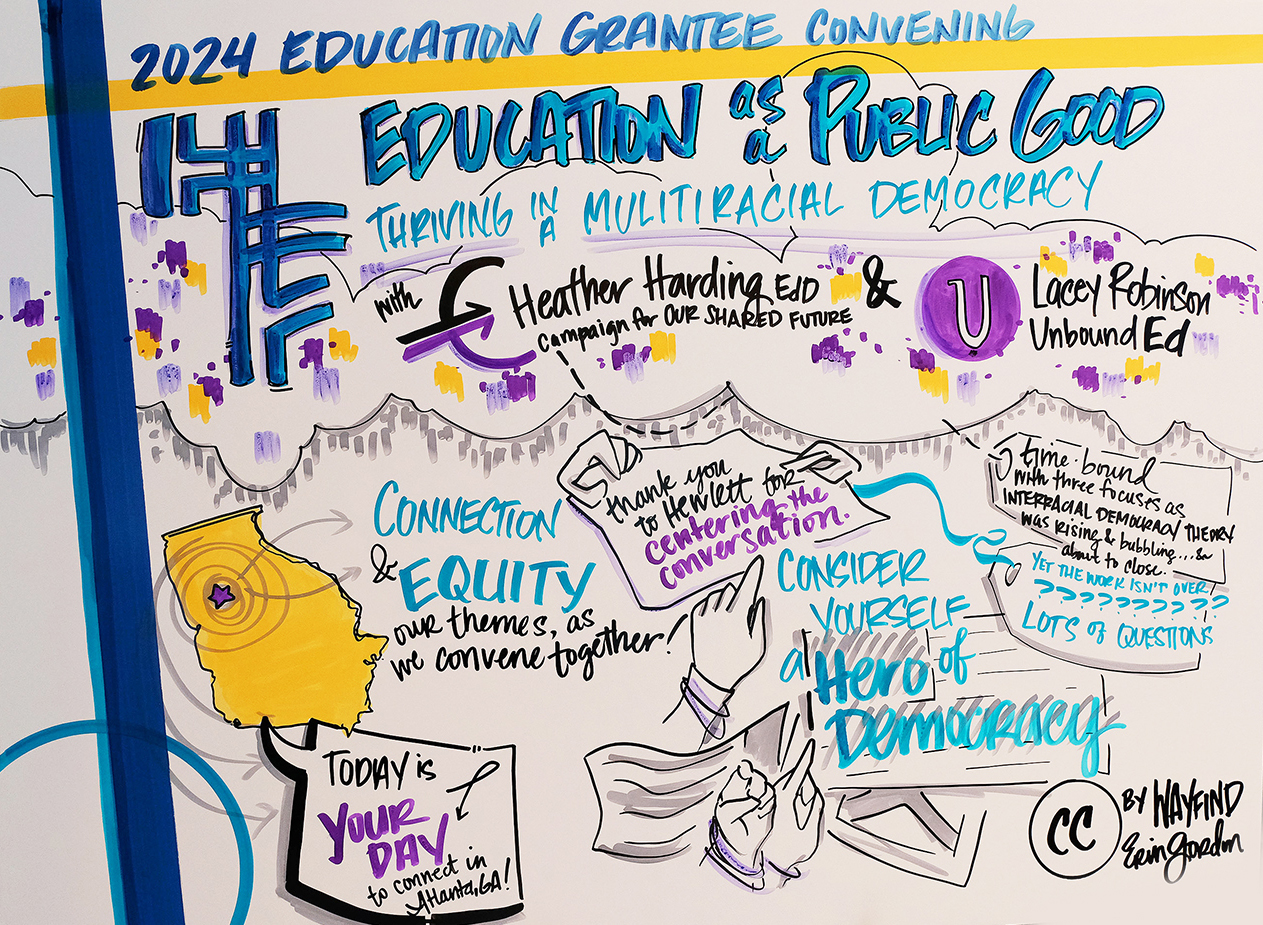 2024 EDUCATION GRANTEE CONVENING
EDUCATION as a PUBLIC GOOD
THRIVING IN A MULITIRACIAL DEMOCRACY
with Heather Harding EdD
campaign for OUR SHARED FUTURE
&
U
Lacey Robinson
Unbound Ed
CONNECTION
& EQUITY
our themes, as
we convene together!
thank you
to Hewlett for
centering the
conversation.
time-bound
with three focuses as
INTERRACIAL DEMOCRACY THEORY
was rising & bubbling...&
about to close.
YET THE WORK ISN'T OVER
??????????
LOTS of QUESTIONS
CONSIDER
YOURSELF
a Hero of
Democracy
TODAY is
YOUR
DAY
to connect in
Atlanta, GA!
CC
BY WAYFIND
Erin Gordon